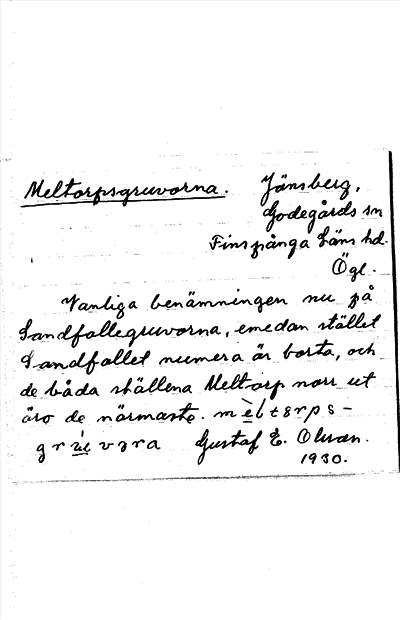 Meltorpsgruvorna. Jänsberg,
Godegårds sn
Finspånga läns hd.
Ögl.
Vanliga benämningen nu på
Sandfallegruvorna, emedan stället
Sandfallet numera är borta, och
de båda ställena Meltorp norr ut
äro de närmaste. mèltɜrps-
grùvɜra Gustaf E. Olsson.
1930.